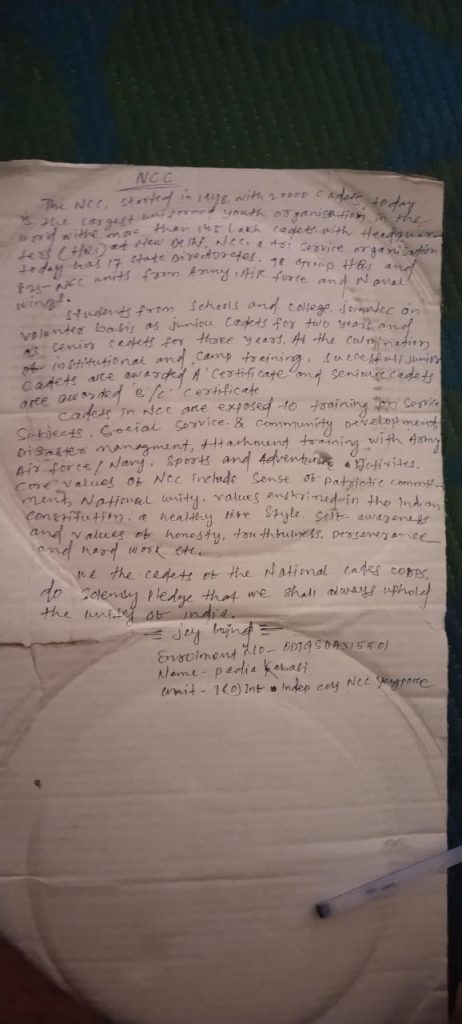 NCC
The NCC, Started in 1948 with 20000 Cadets, today
is the largest uniformed youth organisation in the
world withe more than 14.5 Lakh cadets with Headquar-
ters (HQ) at New Delhi. NCC, a tri service organisation
today has 17 state Directorates, 98 Group HQs and
NCC units from Army, Air force and Naval
wings.
students from Schools and college, on
volunter basis as junior Cadets for two years and
as senior cadets for three years. At the culmination
of institutional and camp training, Successfull junior
Cadets are awarded A' Certificate and seniour cadets
are awarded 'B'/'C' Certificate
Cadets in NCC are exposed to training on Service
Subjects, Social Service & community Development,
Disaster managment, Attachment training with Army
Air force/ Navy, Sports and Adventure Activites.
Core values of NCC include Sense of patriotic commit-
ment, National unity. values enshrined in the Indian
Constitution, a healthy life Style. Self-awareness
and values of honesty, truthfulness, perseverance
and hard work etc.
we the cadets of the National cades corps.
do solemny Pledge that we shall always uphold
the of india.
= jay hind =
Enrolment No-
Name - padia
unit - Indep coy NCC